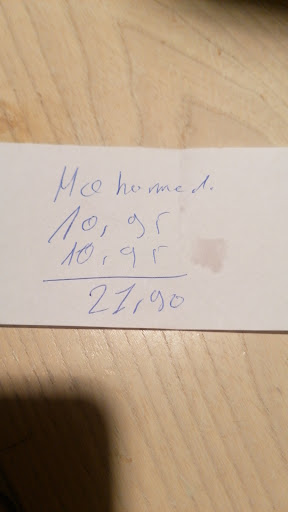 Mohammed.
10,95
10,95
21,90